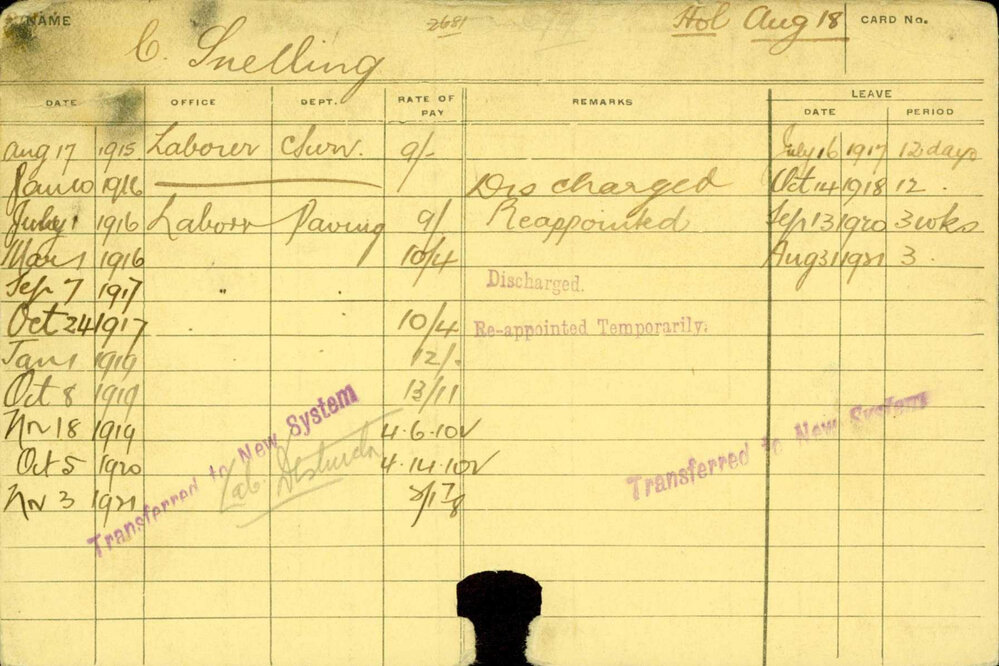 NAME C. Snelling 2681 Hol Aug 18 CARD No.
DATE OFFICE DEPT. RATE OF PAY REMARKS LEAVE
DATE PERIOD
Aug 17 1915 Laborer Survr. 9/- July 16 1917 12 days
Jan 10 1916 Discharged Oct 14 1918 12.
July 1 1916 Laborr Paving 9/ Reappointed Sep 13 1920 3 wks
Mar 1 1916 10/4 Aug 31 1921 3.
Sep 7 1917 " Discharged.
Oct 24 1917 10/4 Re-appointed Temporarily.
Jan 1 1919 12/-
Oct 8 1919 13/11
Nv 18 1919 4.6.10 v
Oct 5 1920 4.14.10 v
Nv 3 1921
Transferred to New System
Lab.
Transferred to New System